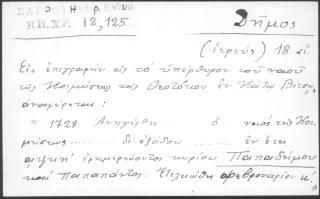 Δῆμος
ΗΠ.ΧΡ. 12, 125
(ἱερεύς) 18 αἰ.
Εἰς ἐπιγραφήν εἰς τό ὑπέρθυρον τοῦ ναοῦ
τῆς Κοιμήσεως τῆς Θεοτόκου ἐν Κάτω Βίτσῃ
ἀναφέρεται:
"1728. Ἀνηγέρθη ... ὁ ... ναός τῆς Κοι-
μήσεως ........ δι' ἐξόδου ...... ἐν ἔτει
αψκη' ἐφημερεύοντος κυρίου Παπαδήμου
καί παπαπάντος. Ἐτελειώθη φεβρουαρίου κ'